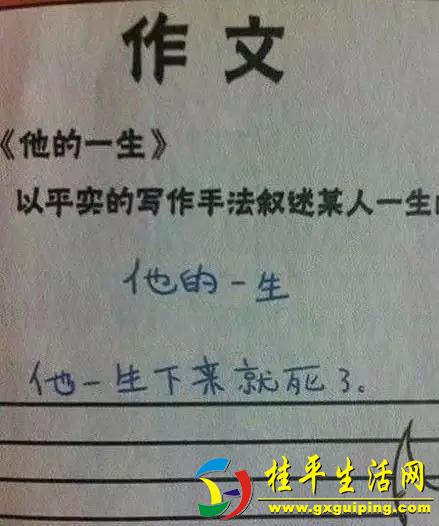 作文
《他的一生》
以平实的写作手法叙述某人一生
他的一生
他一生下来就死了。
桂平生活网
www.gxguiping.com